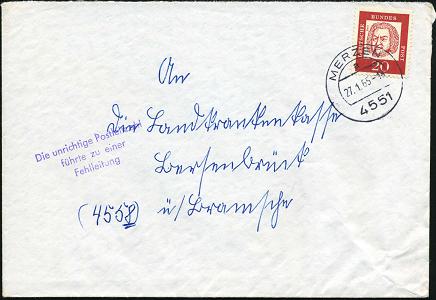 DEUTSCHE BUNDES POST
20
MERZEN
27.1.65
4551
An
Die Landkrankenkasse
Die unrichtige
führte zu einer
Fehlleitung
Bersenbrück
(4558) ü/Bramsche